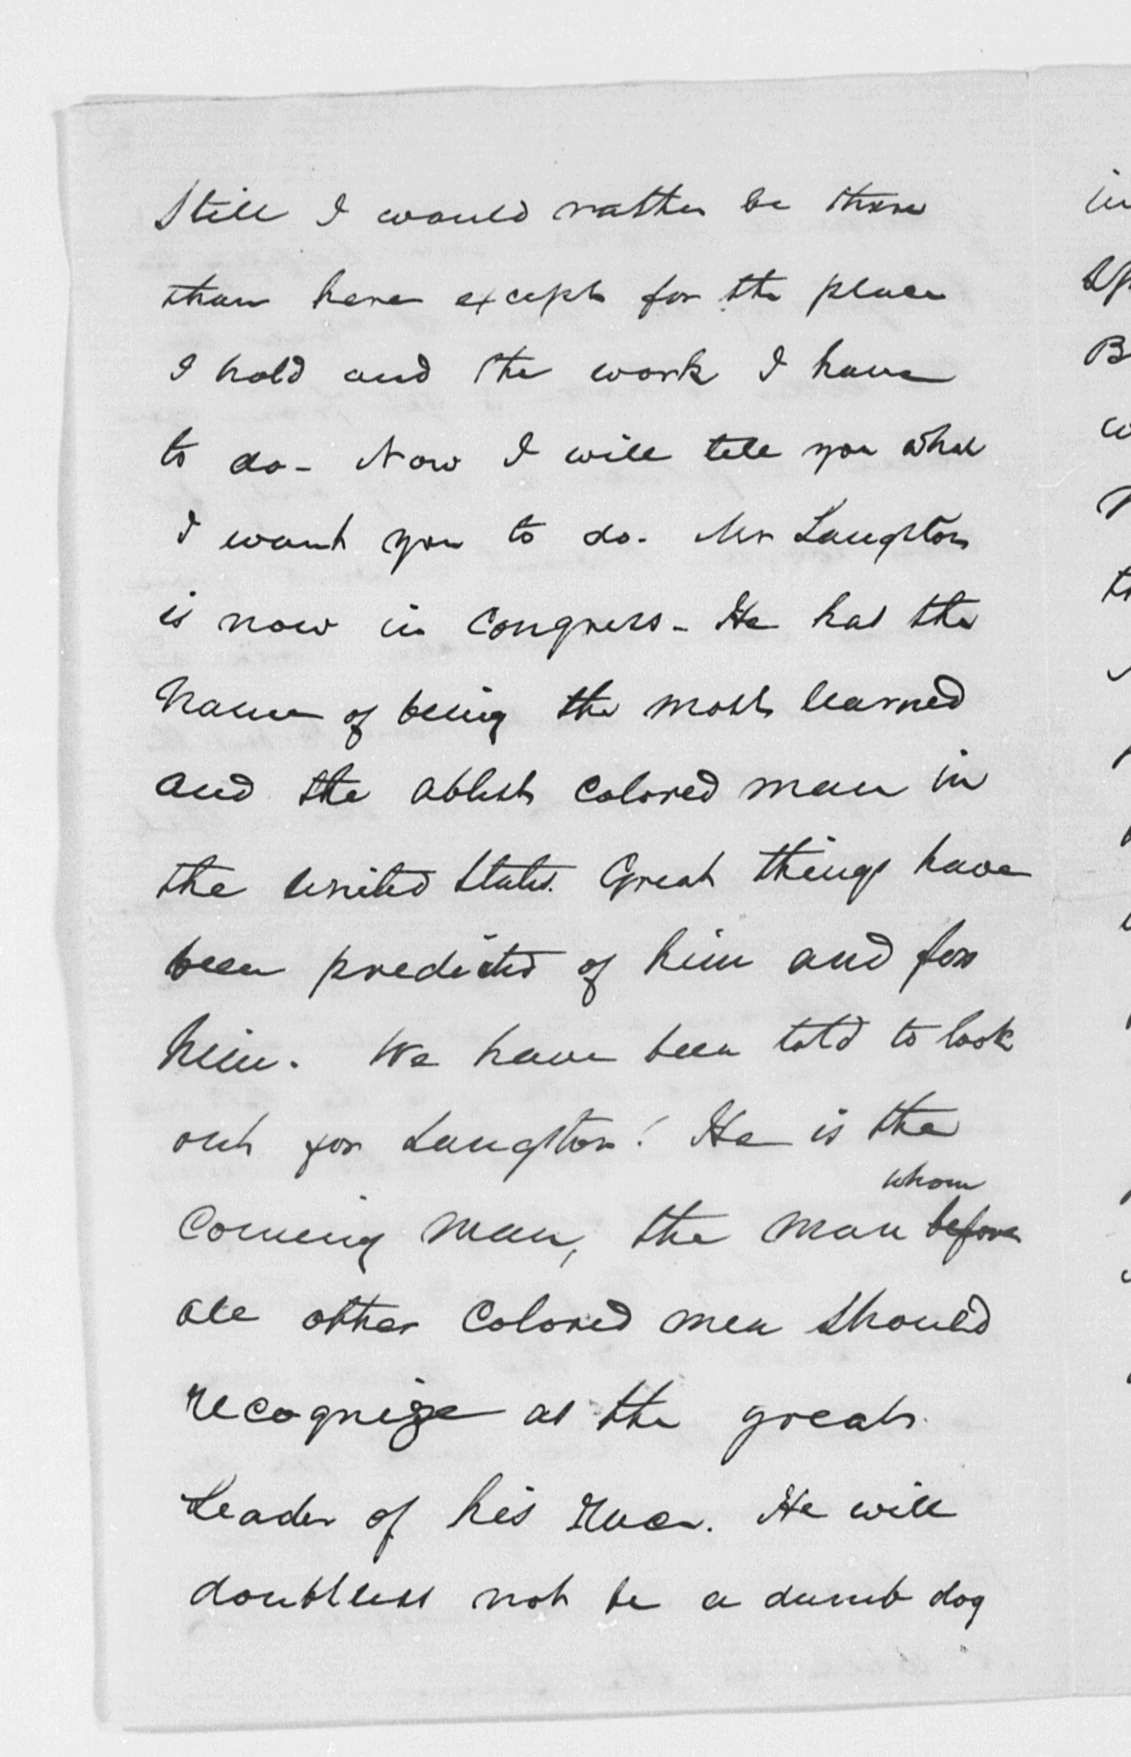 Still I would rather be there
than here except for the place
I hold and the work I have
to do - Now I will tell you what
I want you to do. Mr Langston
is now in Congress - He has the
name of being the most learned
and the ablest colored man in
the United States. Great things have
been predicted of him and for
him. We have been told to look
out for Langston! He is the
whom
coming man, the man before
all other colored men should
recognize as the great
Leader of his race. He will
doubtless not be a dumb dog